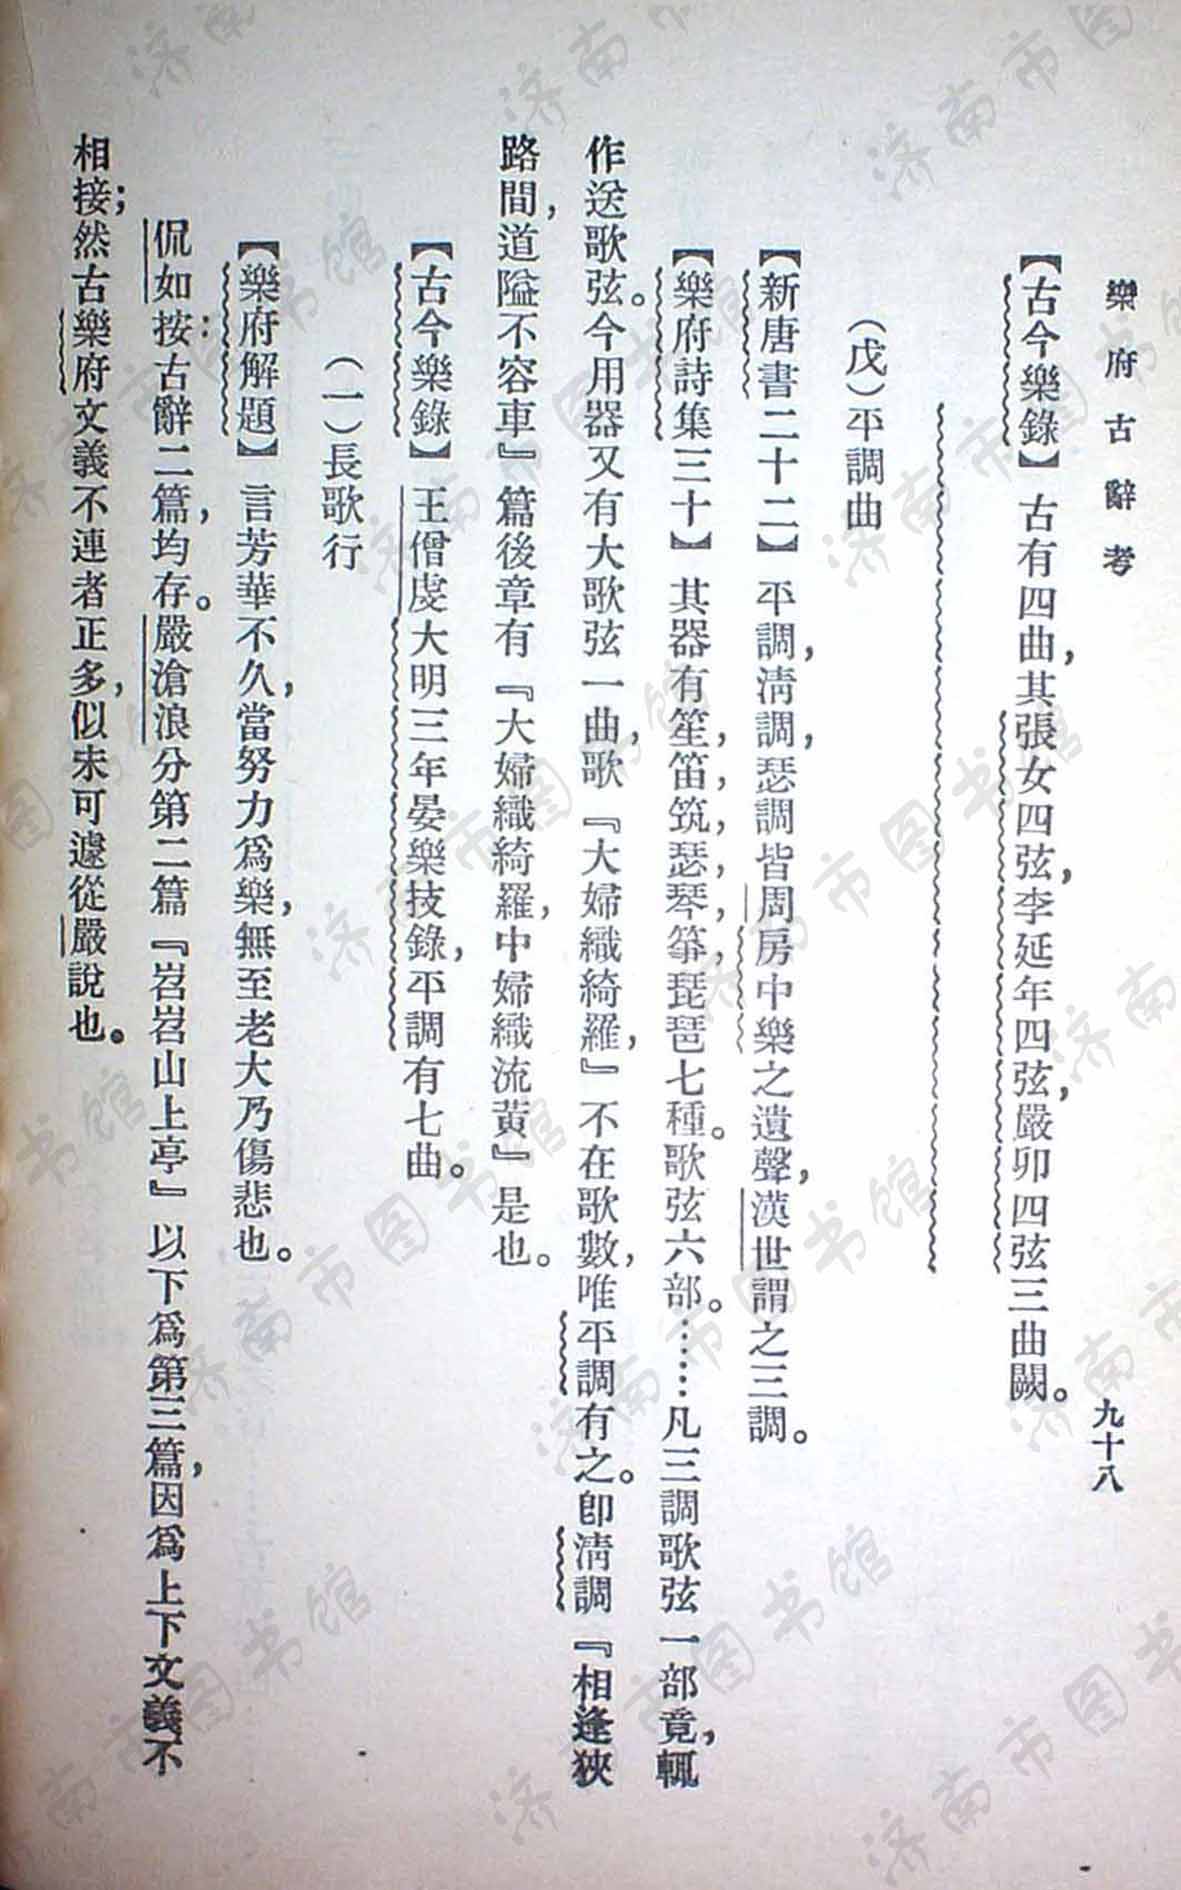 樂府古辭考
九十八
【古今樂錄】古有四曲，其張女四弦，李延年四弦，嚴卯四弦三曲闕。
（戊）平調曲
【新唐書二十二】平調，清調，瑟調皆周房中樂之遺聲，漢世謂之三調。
【樂府詩集三十】其器有笙，笛，筑，瑟，琴，箏，琵琶七種。歌弦六部。……凡三調歌弦一部竟，輒
作送歌弦。今用器又有大歌弦一曲，歌『大婦織綺羅，』不在歌數，唯平調有之。卽清調『相逢狹
路間，道隘不容車』篇後章有『大婦織綺羅，中婦織流黃』是也。
【古今樂錄】王僧虔大明三年晏樂技錄，平調有七曲。
（一）長歌行
【樂府解題】言芳華不久，當努力爲樂，無至老大乃傷悲也。
侃如按：古辭二篇，均存。嚴滄浪分第二篇『岧岧山上亭』以下爲第三篇，因爲上下文義不
相接；然古樂府文義不連者正多，似未可遽從嚴說也。
济南市图书馆